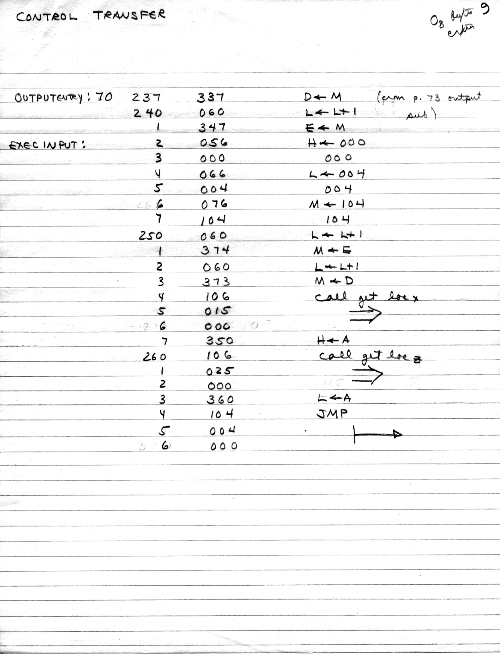 9
CONTROL TRANSFER
OUTPUTENTRY: 70 237 337 D ← M (from p. 73 output
240 060 L ← L+1 sub)
1 347 E ← M
EXEC INPUT: 2 056 H ← 000
3 000 000
4 066 L ← 004
5 004 004
6 076 M ← 104
7 104 104
250 060 L ← L+1
1 374 M ← E
2 060 L ← L+1
3 373 M ← D
4 106 call get loc
5 015
6 000
7 350 H ← A
260 106 call get loc
1 025
2 000
3 360 L ← A
4 104 JMP
5 004
6 000